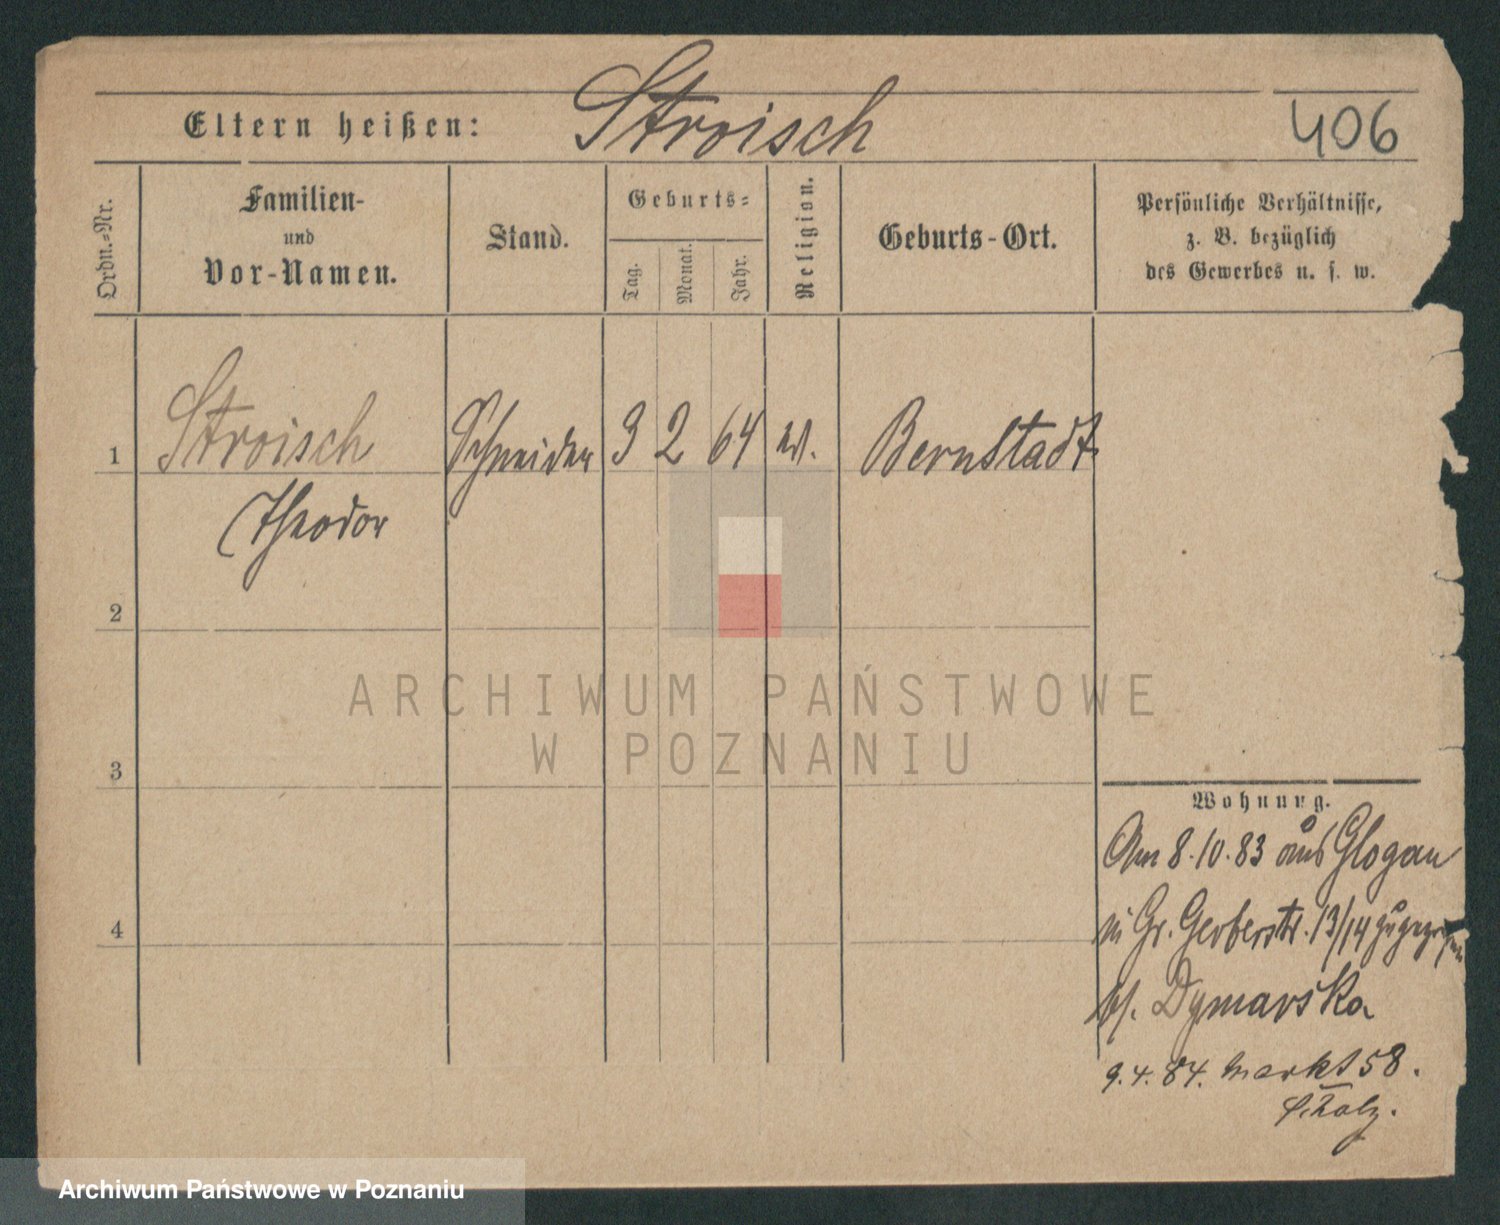 Eltern heißen: Stroisch 406
Ordn.-Nr.
Familien-
und
Vor-Namen.
Stand.
Geburts-
Tag.
Monat.
Jahr.
Religion.
Geburts-Ort.
Persönliche Verhältnisse,
z. B. bezüglich
des Gewerbes u. s. w.
1 Stroisch Schneider 3 2 64 ev. Bernstadt
Theodor
2
3
4
ARCHIWUM PAŃSTWOWE
W POZNANIU
Wohnung.
Am 8.10.83 aus Glogau
in Gr. Gerberstr. 13/14 zugezogen
bf. Dymarska
9.4.84. Markt 58.
Archiwum Państwowe w Poznaniu